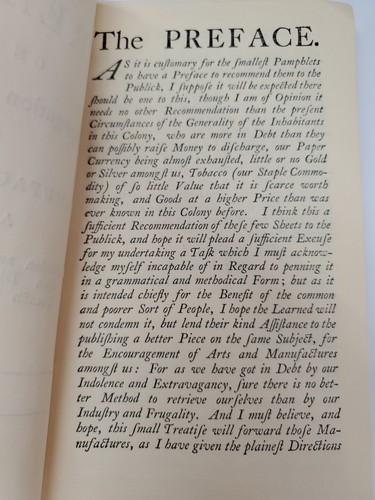 The PREFACE.
AS it is cuſtomary for the ſmalleſt Pamphlets
to have a Preface to recommend them to the
Publick, I ſuppoſe it will be expected there
ſhould be one to this, though I am of Opinion it
needs no other Recommendation than the preſent
Circumſtances of the Generality of the Inhabitants
in this Colony, who are more in Debt than they
can poſſibly raiſe Money to diſcharge, our Paper
Currency being almoſt exhauſted, little or no Gold
or Silver amongſt us, Tobacco (our Staple Commo-
dity) of ſo little Value that it is ſcarce worth
making, and Goods at a higher Price than was
ever known in this Colony before. I think this a
ſufficient Recommendation of theſe few Sheets to the
Publick, and hope it will plead a ſufficient Excuſe
for my undertaking a Taſk which I muſt acknow-
ledge myſelf incapable of in Regard to penning it
in a grammatical and methodical Form; but as it
is intended chiefly for the Benefit of the common
and poorer Sort of People, I hope the Learned will
not condemn it, but lend their kind Aſſiſtance to the
publiſhing a better Piece on the ſame Subject, for
the Encouragement of Arts and Manufactures
amongſt us: For as we have got in Debt by our
Indolence and Extravagancy, ſure there is no bet-
ter Method to retrieve ourſelves than by our
Induſtry and Frugality. And I muſt believe, and
hope, this ſmall Treatiſe will forward thoſe Ma-
nufactures, as I have given the plaineſt Directions